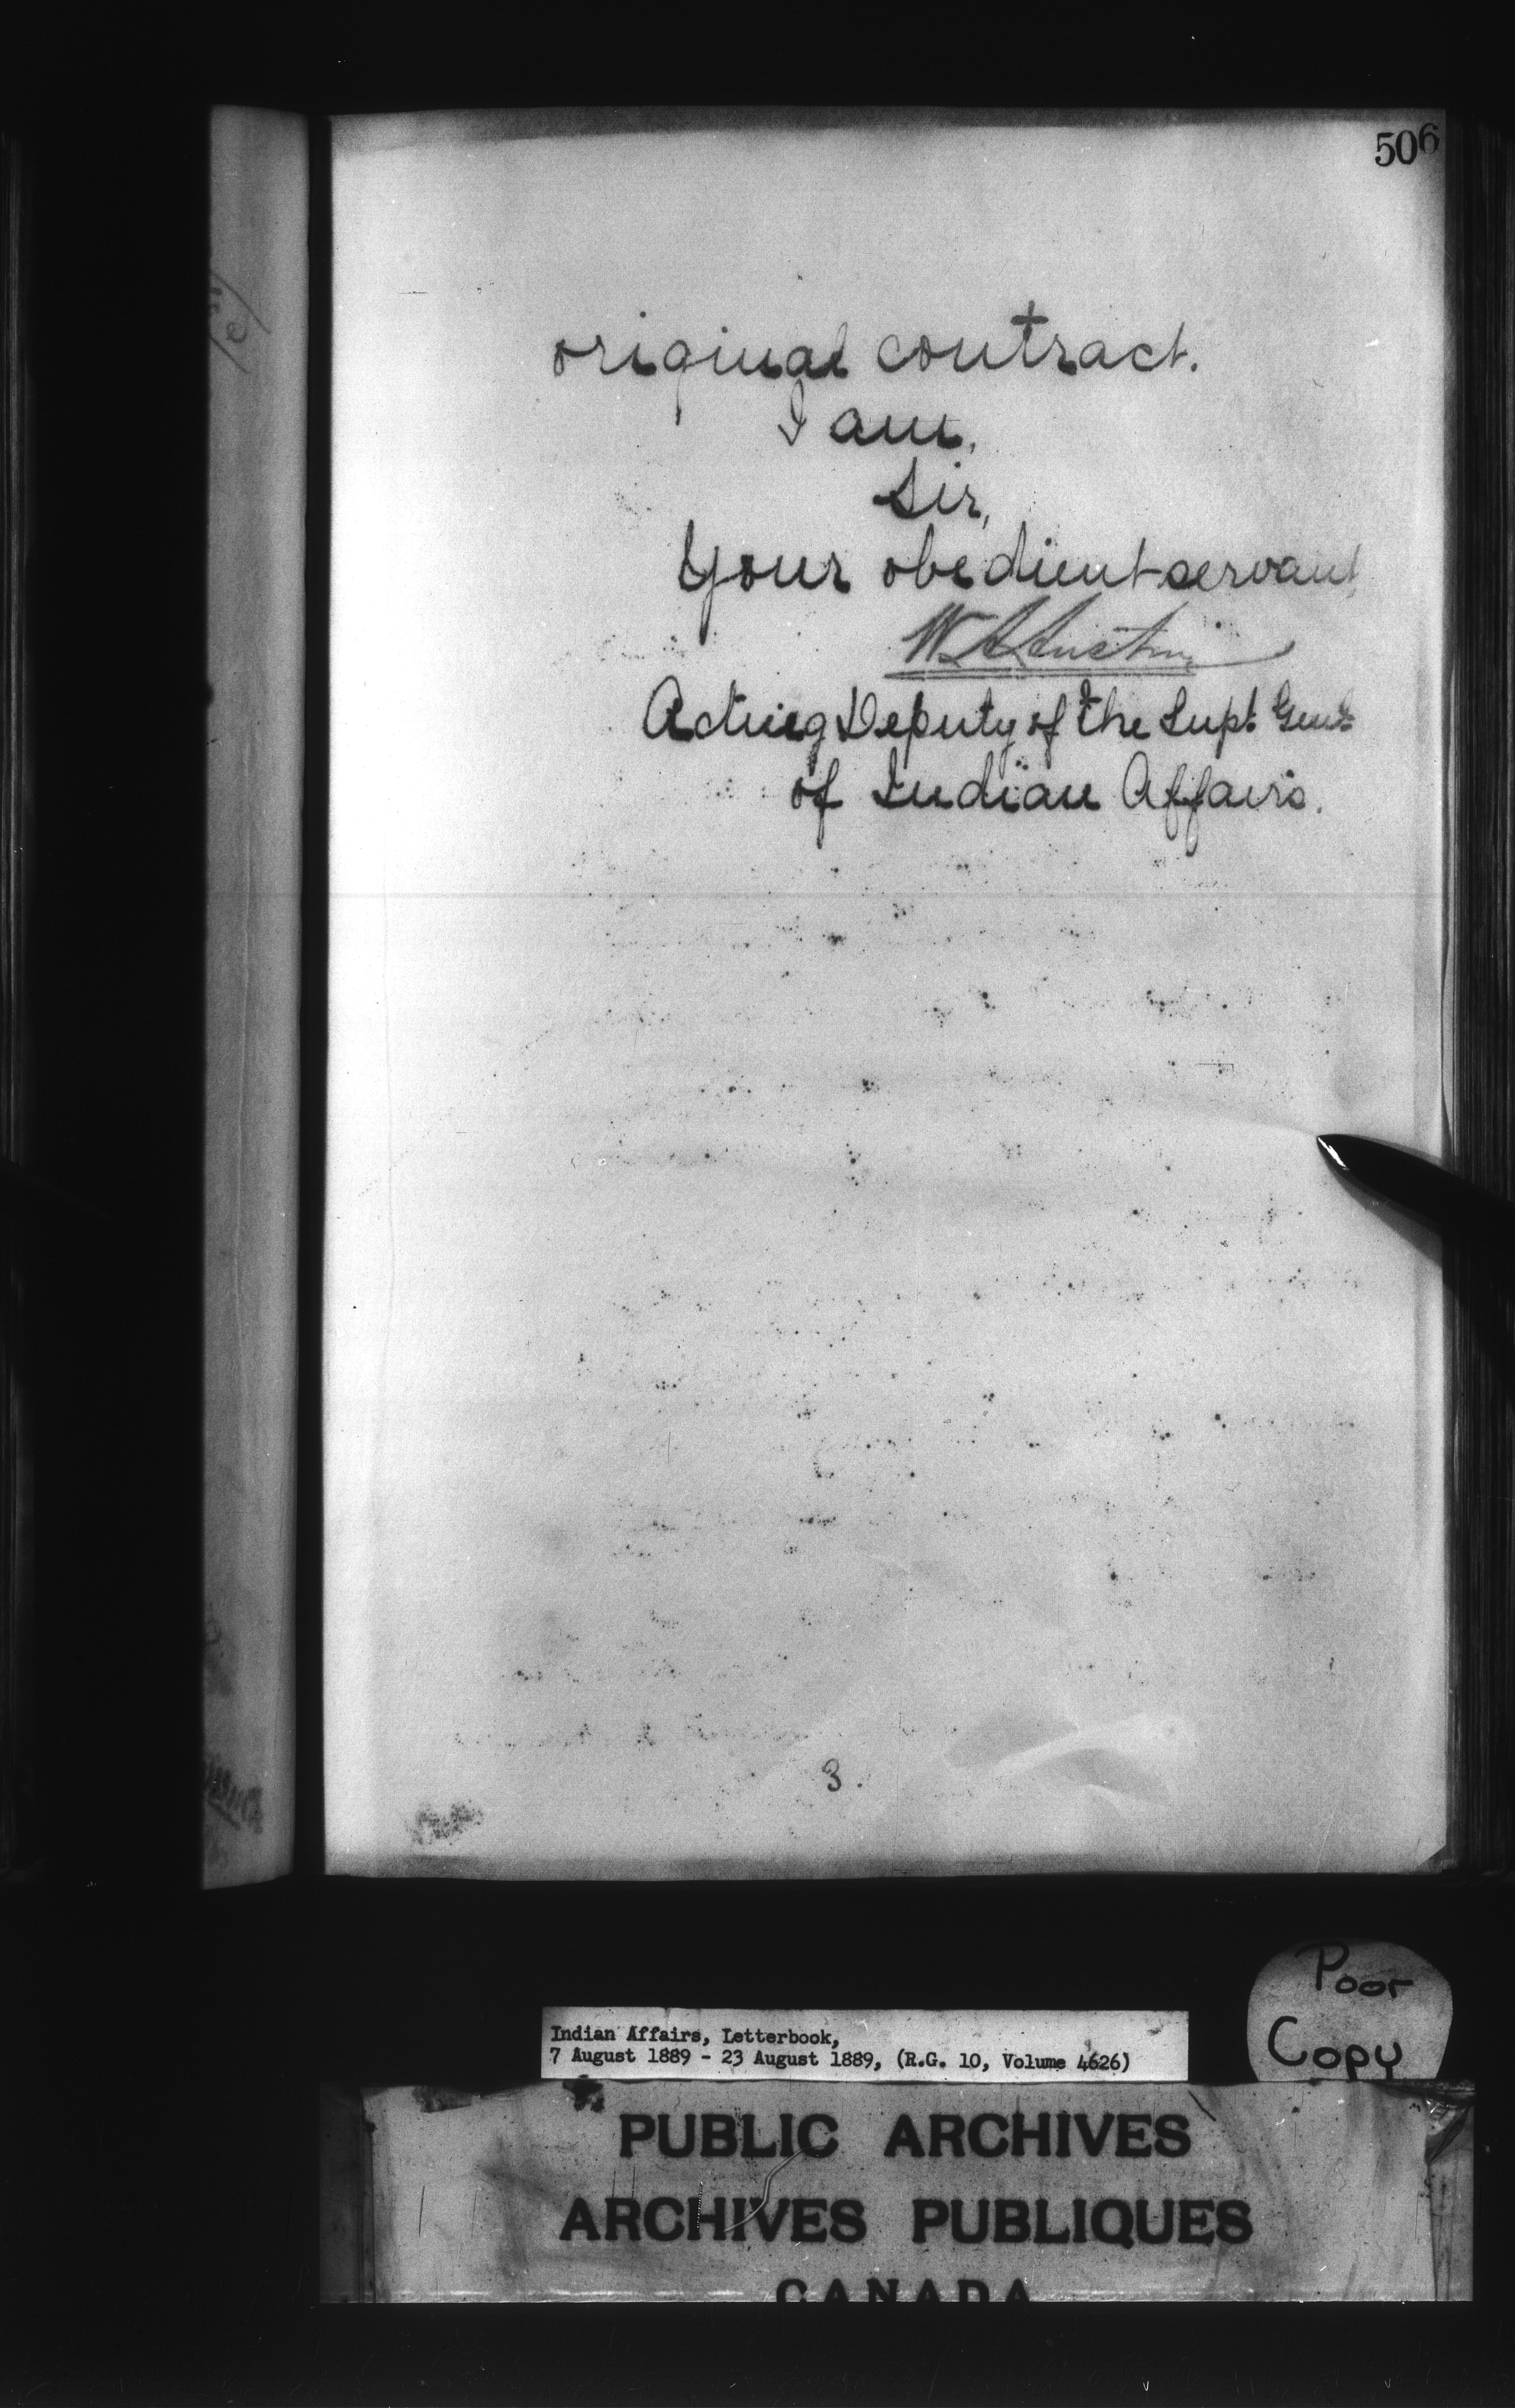 506
original contract.
I am,
Sir,
Your obedient servant
W. A. Austin
Acting Deputy of the Supt. Genl.
of Indian Affairs.
3.
Poor
Copy
Indian Affairs, Letterbook,
7 August 1889 - 23 August 1889, (R.G. 10, Volume 4626)
PUBLIC ARCHIVES
ARCHIVES PUBLIQUES
CANADA